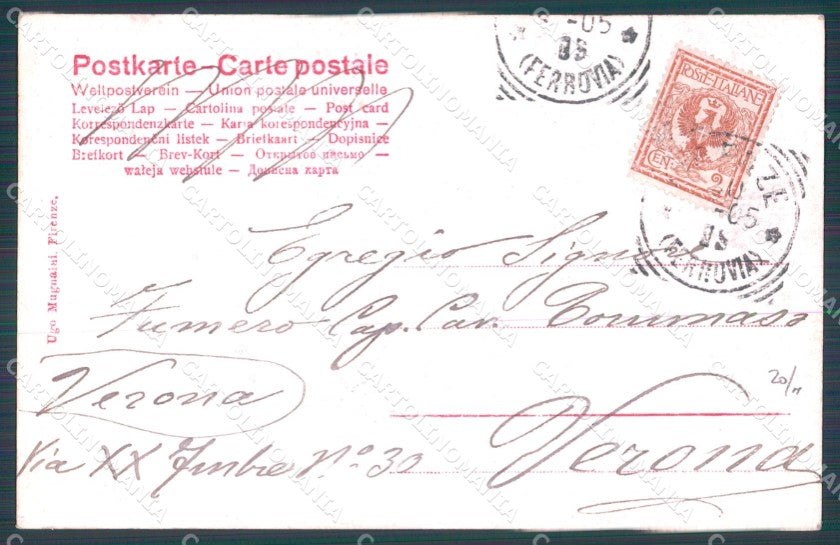 Postkarte – Carte postale
Weltpostverein — Union postale universelle
Levelező Lap — Cartolina postale — Post card
Korrespondenzkarte — Karta korespondencyjna —
Korespondenční listek — Briefkaart — Dopisnice
Brefkort — Brev-Kort — Открытое письмо —
Дописна карта
Ugo Mugnaini, Firenze.
-05
(FERROVIA)
POSTE ITALIANE
CENT. 2
-05
(FERROVIA)
Egregio Signor
Fumero Cap. Cav. Tommaso
Verona
20/
Via XX 7mbre No 30
Verona
CARTOLINOMANIA